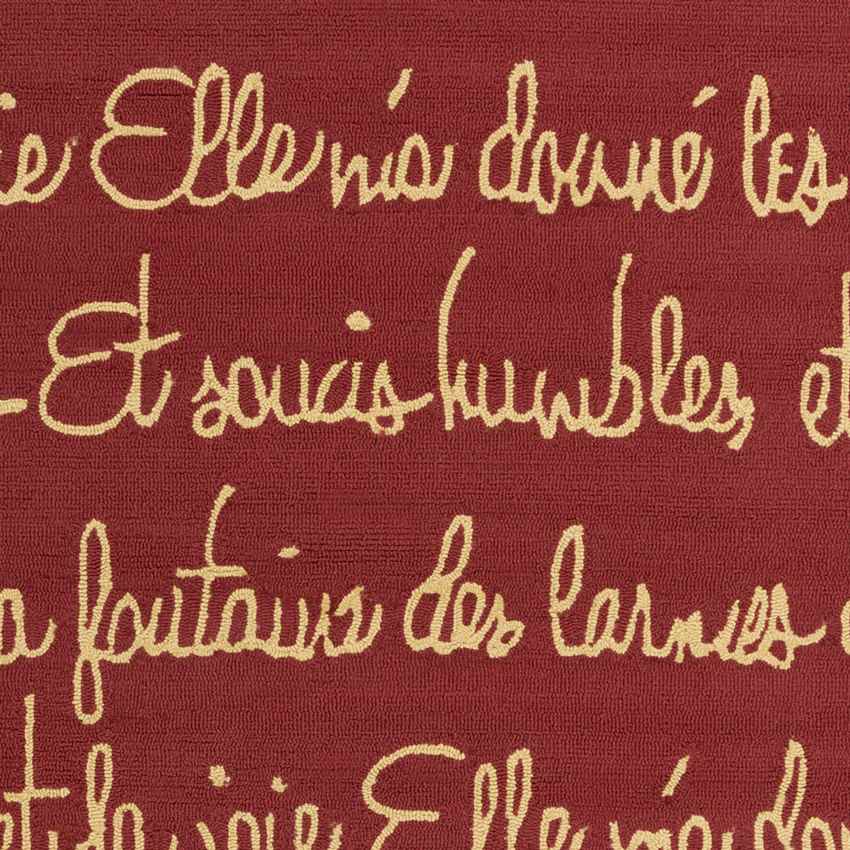 Elle m'a donné les
- Et soucis humbles, et
fontaine des larmes
et de joie Elle m'a